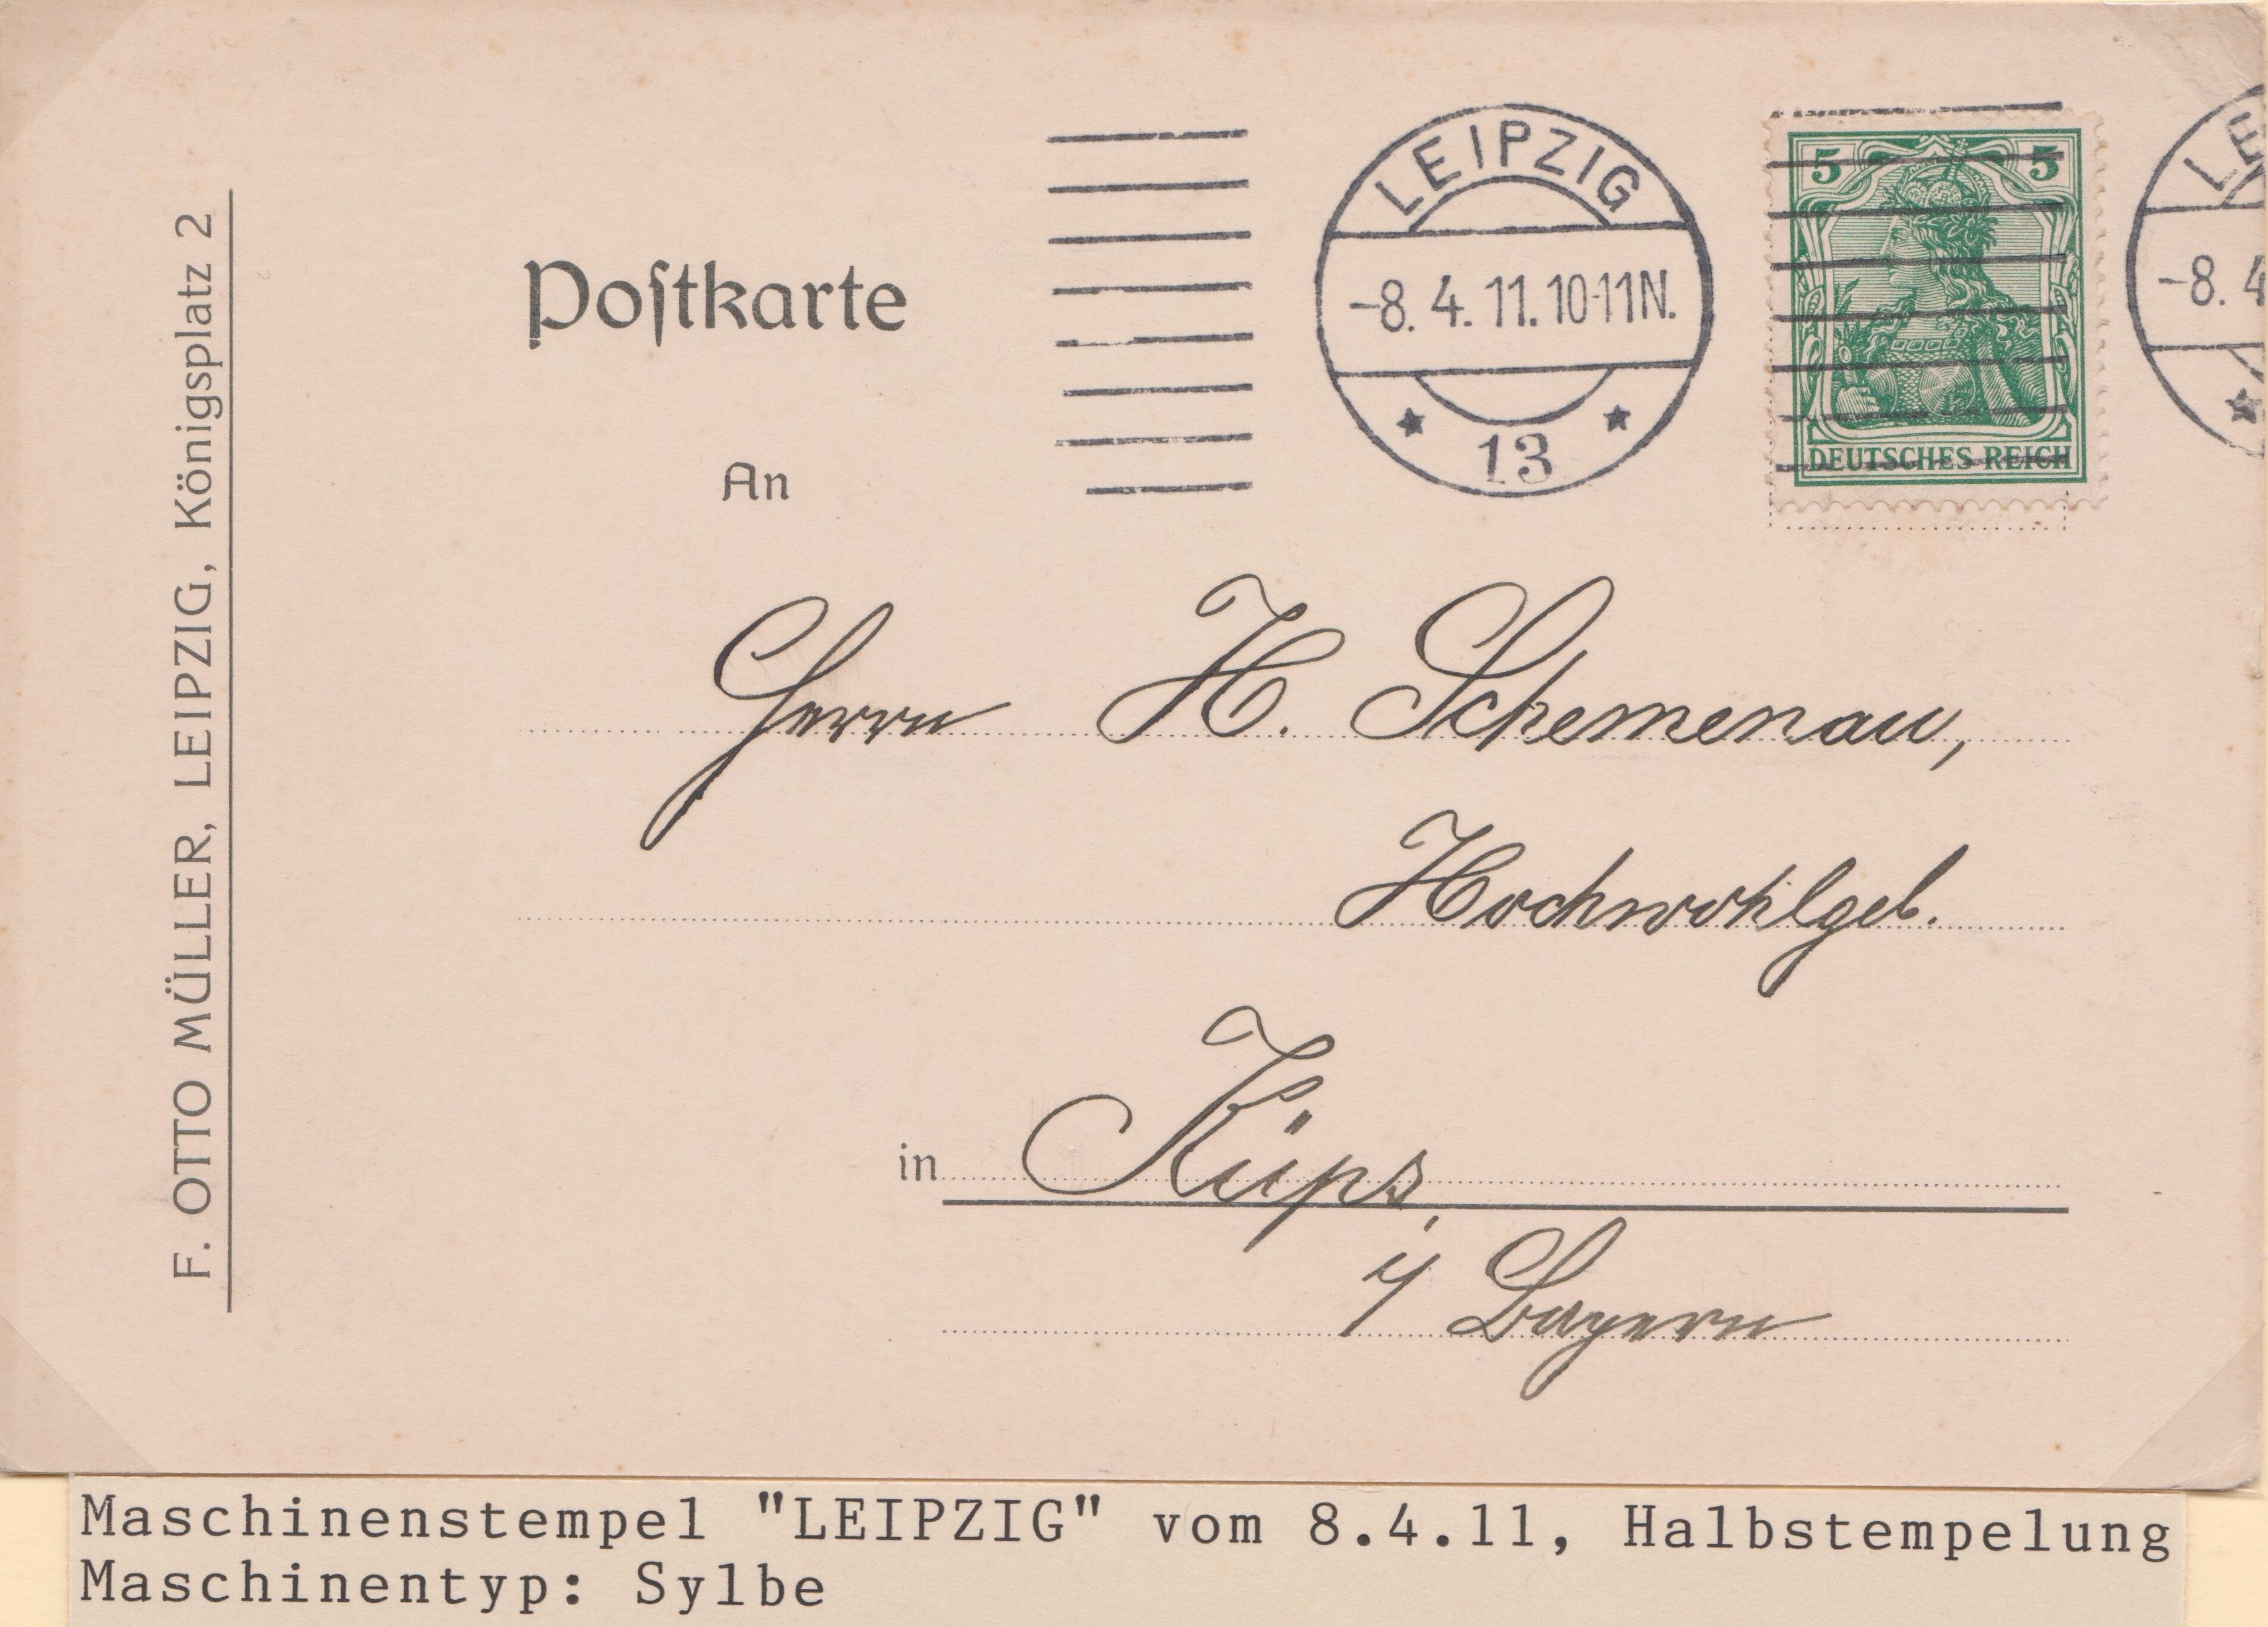 F. OTTO MÜLLER, LEIPZIG, Königsplatz 2
Poſtkarte
An
LEIPZIG
-8. 4. 11. 10-11N.
13
5 5
DEUTSCHES REICH
LE
-8. 4
Herrn H. Schemenau,
Hochwohlgeb.
in Küps,
i/ Bayern
Maschinenstempel "LEIPZIG" vom 8.4.11, Halbstempelung
Maschinentyp: Sylbe